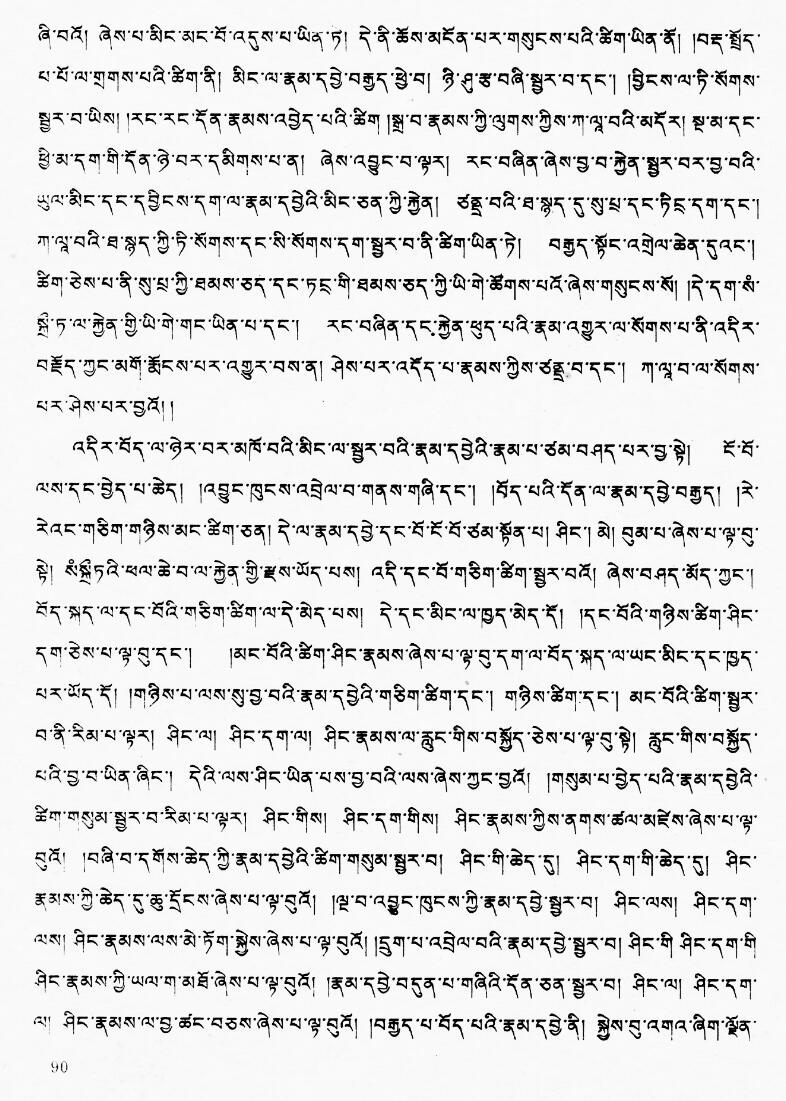 ཞི་བའོ། ཞེས་པ་མིང་མང་པོ་འདུས་པ་ཡིན་ཏ། དེ་ནི་ཆོས་མངོན་པར་གསུངས་པའི་ཚིག་ཡིན་ནོ། །བརྡ་སྤྲོད་
པ་པོ་ལ་གྲགས་པའི་ཚིག་ནི། མིང་ལ་རྣམ་དབྱེ་བརྒྱད་ཕྱེ་བ། ཉི་ཤུ་རྩ་བཞི་སྦྱར་བ་དང་། །བྱིངས་ལ་ཏི་སོགས་
སྦྱར་བ་ཡིས། །རང་རང་དོན་རྣམས་འབྱེད་པའི་ཚིག །སྒྲ་བ་རྣམས་ཀྱི་ལུགས་ཀྱིས་ཀ་ལཱ་བའི་མདོར། སྔ་མ་དང་
ཕྱི་མ་དག་གི་དོན་ཉེ་བར་དམིགས་པ་ན། ཞེས་འབྱུང་བ་ལྟར། རང་བཞིན་ཞེས་བྱ་བ་རྐྱེན་སྦྱར་བར་བྱ་བའི་
ཡུལ་མིང་དང་དབྱིངས་དག་ལ་རྣམ་དབྱེའི་མིང་ཅན་གྱི་རྐྱེན། ཙནྡྲ་བའི་ཐ་སྙད་དུ་སུ་པྲ་དང་ཏིང་དག་དང་།
ཀ་ལཱ་བའི་ཐ་སྙད་ཀྱི་ཏི་སོགས་དང་སི་སོགས་དག་སྦྱར་བ་ནི་ཚིག་ཡིན་ཏེ། བརྒྱད་སྟོང་འགྲེལ་ཆེན་དུའང་།
ཚིག་ཅེས་པ་ནི་སུ་པྲ་ཀྱི་ཐམས་ཅད་དང་ཏང་གི་ཐམས་ཅད་ཀྱི་ཡི་གེ་ཚོགས་པའོ་ཞེས་གསུངས་སོ། །དེ་དག་སཾ་
སྐྲྀ་ཏ་ལ་རྐྱེན་གྱི་ཡི་གེ་གང་ཡིན་པ་དང་། རང་བཞིན་དང་རྐྱེན་ཕུད་པའི་རྣམ་འགྱུར་ལ་སོགས་པ་ནི་འདིར་
བརྗོད་ཀྱང་མགོ་རྨོངས་པར་འགྱུར་བས་ན། ཤེས་པར་འདོད་པ་རྣམས་ཀྱིས་ཙནྡྲ་བ་དང་། ཀ་ལཱ་བ་ལ་སོགས་
པར་ཤེས་པར་བྱའོ།།
འདིར་བོད་ལ་ཉེར་བར་མཁོ་བའི་མིང་ལ་སྦྱར་བའི་རྣམ་དབྱེའི་རྣམ་པ་ཙམ་བཤད་པར་བྱ་སྟེ། ངོ་བོ་
ལས་དང་བྱེད་པ་ཆེད། །འབྱུང་ཁུངས་འབྲེལ་བ་གནས་གཞི་དང་། །བོད་པའི་དོན་ལ་རྣམ་དབྱེ་བརྒྱད། །རེ་
རེའང་གཅིག་གཉིས་མང་ཚིག་ཅན། དེ་ལ་རྣམ་དབྱེ་དང་པོ་ངོ་བོ་ཙམ་སྟོན་པ། ཤིང་། མེ། བུམ་པ་ཞེས་པ་ལྟ་བུ་
སྟེ། སཾསྐྲྀཏའི་ཕལ་ཆེ་བ་ལ་རྐྱེན་གྱི་རྫས་ཡོད་པས། འདི་དང་པོ་གཅིག་ཚིག་སྦྱར་བའོ། ཞེས་བཤད་མོད་ཀྱང་།
བོད་སྐད་ལ་དང་པོའི་གཅིག་ཚིག་ལ་དེ་མེད་པས། དེ་དང་མིང་ལ་ཁྱད་མེད་དོ། །དང་པོའི་གཉིས་ཚིག་ཤིང་
དག་ཅེས་པ་ལྟ་བུ་དང་། །མང་པོའི་ཚིག་ཤིང་རྣམས་ཞེས་པ་ལྟ་བུ་དག་ལ་བོད་སྐད་ལ་ཡང་མིང་དང་ཁྱད་
པར་ཡོད་དོ། །གཉིས་པ་ལས་སུ་བྱ་བའི་རྣམ་དབྱེའི་གཅིག་ཚིག་དང་། གཉིས་ཚིག་དང་། མང་པོའི་ཚིག་སྦྱར་
བ་ནི་རིམ་པ་ལྟར། ཤིང་ལ། ཤིང་དག་ལ། ཤིང་རྣམས་ལ་རླུང་གིས་བསྐྱོད་ཅེས་པ་ལྟ་བུ་སྟེ། རླུང་གིས་བསྐྱོད་
པའི་བྱ་བ་ཡིན་ཞིང་། དེའི་ལས་ཤིང་ཡིན་པས་བྱ་བའི་ལས་ཞེས་ཀྱང་བྱའོ། །གསུམ་པ་བྱེད་པའི་རྣམ་དབྱེའི་
ཚིག་གསུམ་སྦྱར་བ་རིམ་པ་ལྟར། ཤིང་གིས། ཤིང་དག་གིས། ཤིང་རྣམས་ཀྱིས་ནགས་ཚལ་མཛེས་ཞེས་པ་ལྟ་
བུའོ། །བཞི་བ་དགོས་ཆེད་ཀྱི་རྣམ་དབྱེའི་ཚིག་གསུམ་སྦྱར་བ། ཤིང་གི་ཆེད་དུ། ཤིང་དག་གི་ཆེད་དུ། ཤིང་
རྣམས་ཀྱི་ཆེད་དུ་ཆུ་དྲོངས་ཞེས་པ་ལྟ་བུའོ། །ལྔ་བ་འབྱུང་ཁུངས་ཀྱི་རྣམ་དབྱེ་སྦྱར་བ། ཤིང་ལས། ཤིང་དག་
ལས། ཤིང་རྣམས་ལས་མེ་ཏོག་སྐྱེས་ཞེས་པ་ལྟ་བུའོ། །དྲུག་པ་འབྲེལ་བའི་རྣམ་དབྱེ་སྦྱར་བ། ཤིང་གི ཤིང་དག་གི
ཤིང་རྣམས་ཀྱི་ཡལ་ག་མཐོ་ཞེས་པ་ལྟ་བུའོ། །རྣམ་དབྱེ་བདུན་པ་གཞིའི་དོན་ཅན་སྦྱར་བ། ཤིང་ལ། ཤིང་དག་
ལ། ཤིང་རྣམས་ལ་བྱ་ཚང་བཅས་ཞེས་པ་ལྟ་བུའོ། །བརྒྱད་པ་བོད་པའི་རྣམ་དབྱེ་ནི། སྐྱེས་བུ་འགའ་ཞིག་ལྗོན་
90